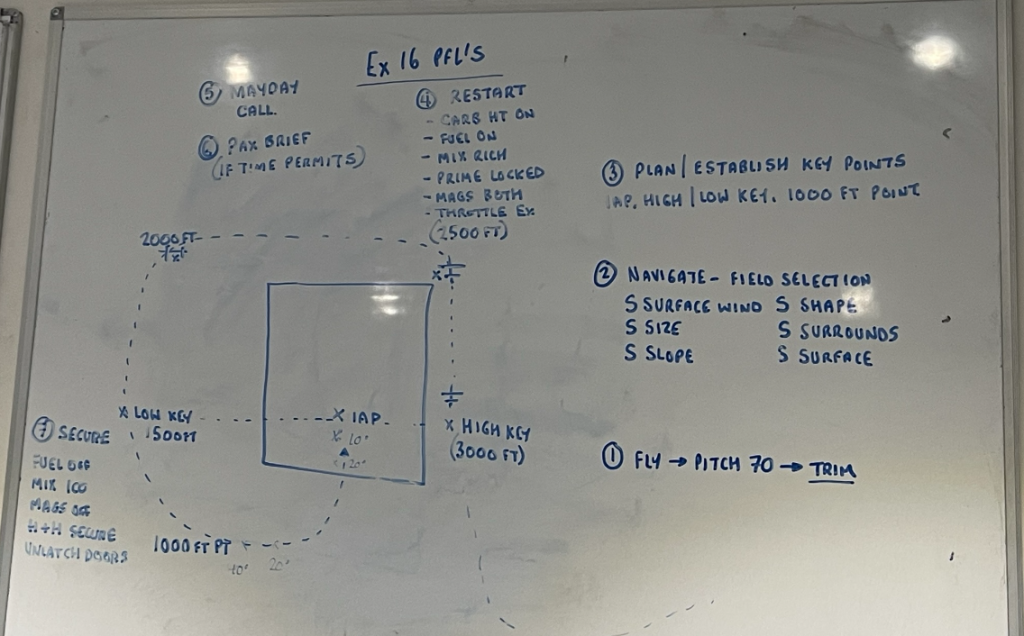 Ex 16 PFL'S
⑤ MAYDAY
CALL.
⑥ PAX BRIEF
(IF TIME PERMITS)
④ RESTART
- CARB HT ON
- FUEL ON
- MIX RICH
- PRIME LOCKED
- MAGS BOTH
- THROTTLE EX
(2500 FT)
③ PLAN / ESTABLISH KEY POINTS
IAP, HIGH / LOW KEY, 1000 FT POINT
② NAVIGATE - FIELD SELECTION
S SURFACE WIND S SHAPE
S SIZE S SURROUNDS
S SLOPE S SURFACE
① FLY → PITCH 70 → TRIM
2000 FT
X
X
X LOW KEY
1500FT
X IAP
X 10°
20°
X HIGH KEY
(3000 FT)
⑦ SECURE
FUEL OFF
MIX ICO
MAGS OFF
H+H SECURE
UNLATCH DOORS
1000 FT PT
10° 20°